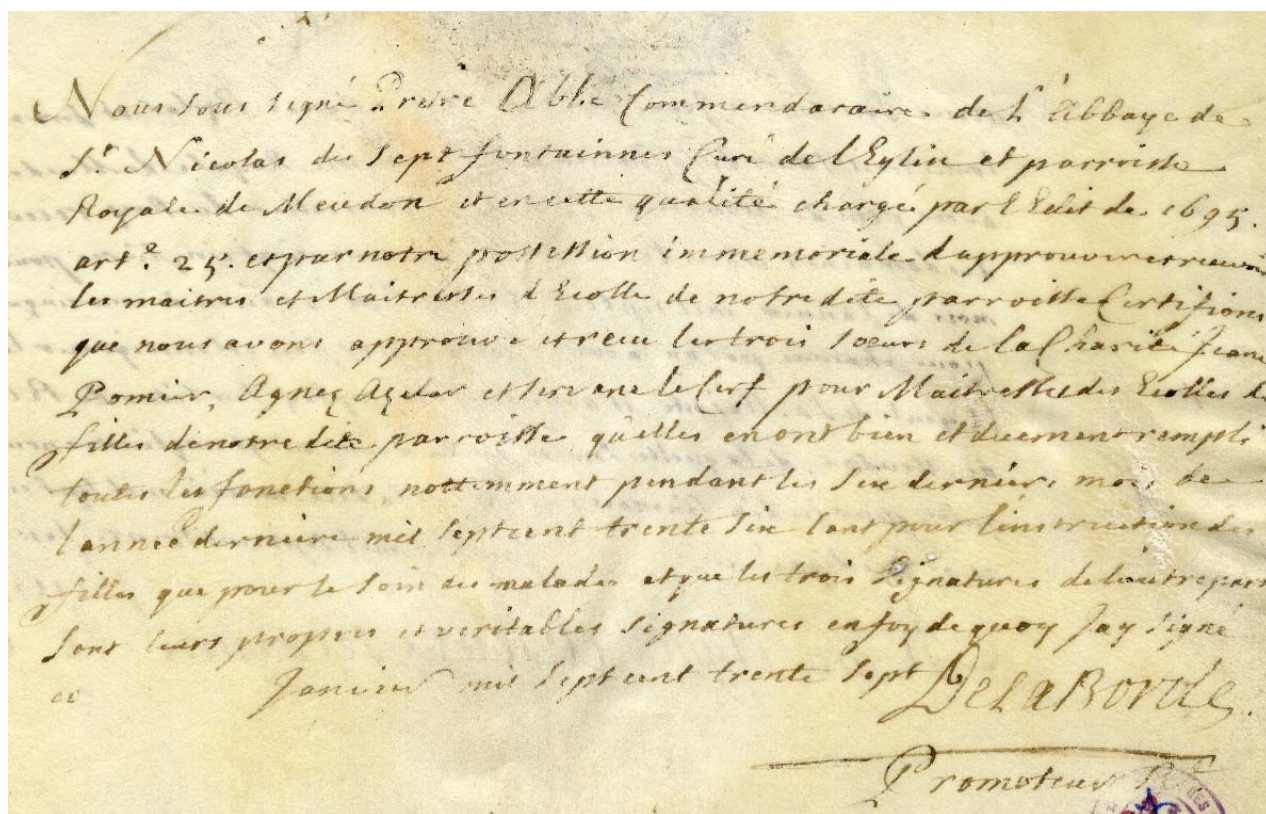 Nous sous signé Pretre Abbé Commendataire de L'Abbaye de
St. Nicolas des Sept fontainnes Curé de l'Eglise et parroisse
Royale de Meudon et en cette qualité chargé par l'Edit de 1695.
art.e 25. et par notre possession immemoriale d'approuver et recevoir
les maitres et Maitresses d'Ecolle de notre dite parroisse Certifions
que nous avons approuvé et receu les trois soeurs de la Charité Jeane
Pomier, Agnez Azelar et servane le Cerf pour Maitresses des Ecolles de
filles de notre dite parroisse qu'elles en ont bien et duement rempli
toutes les fonctions nottemment pendant les six derniers mois de
l'année derniere mil sept cent trente six tant pour l'instruction des
filles que pour le soin des malades et que les trois signatures de l'autre part
sont leurs propres et veritables signatures en foy de quoy J'ay signé
ce Janvier mil sept cent trente sept DeLaBorde
Promoteur